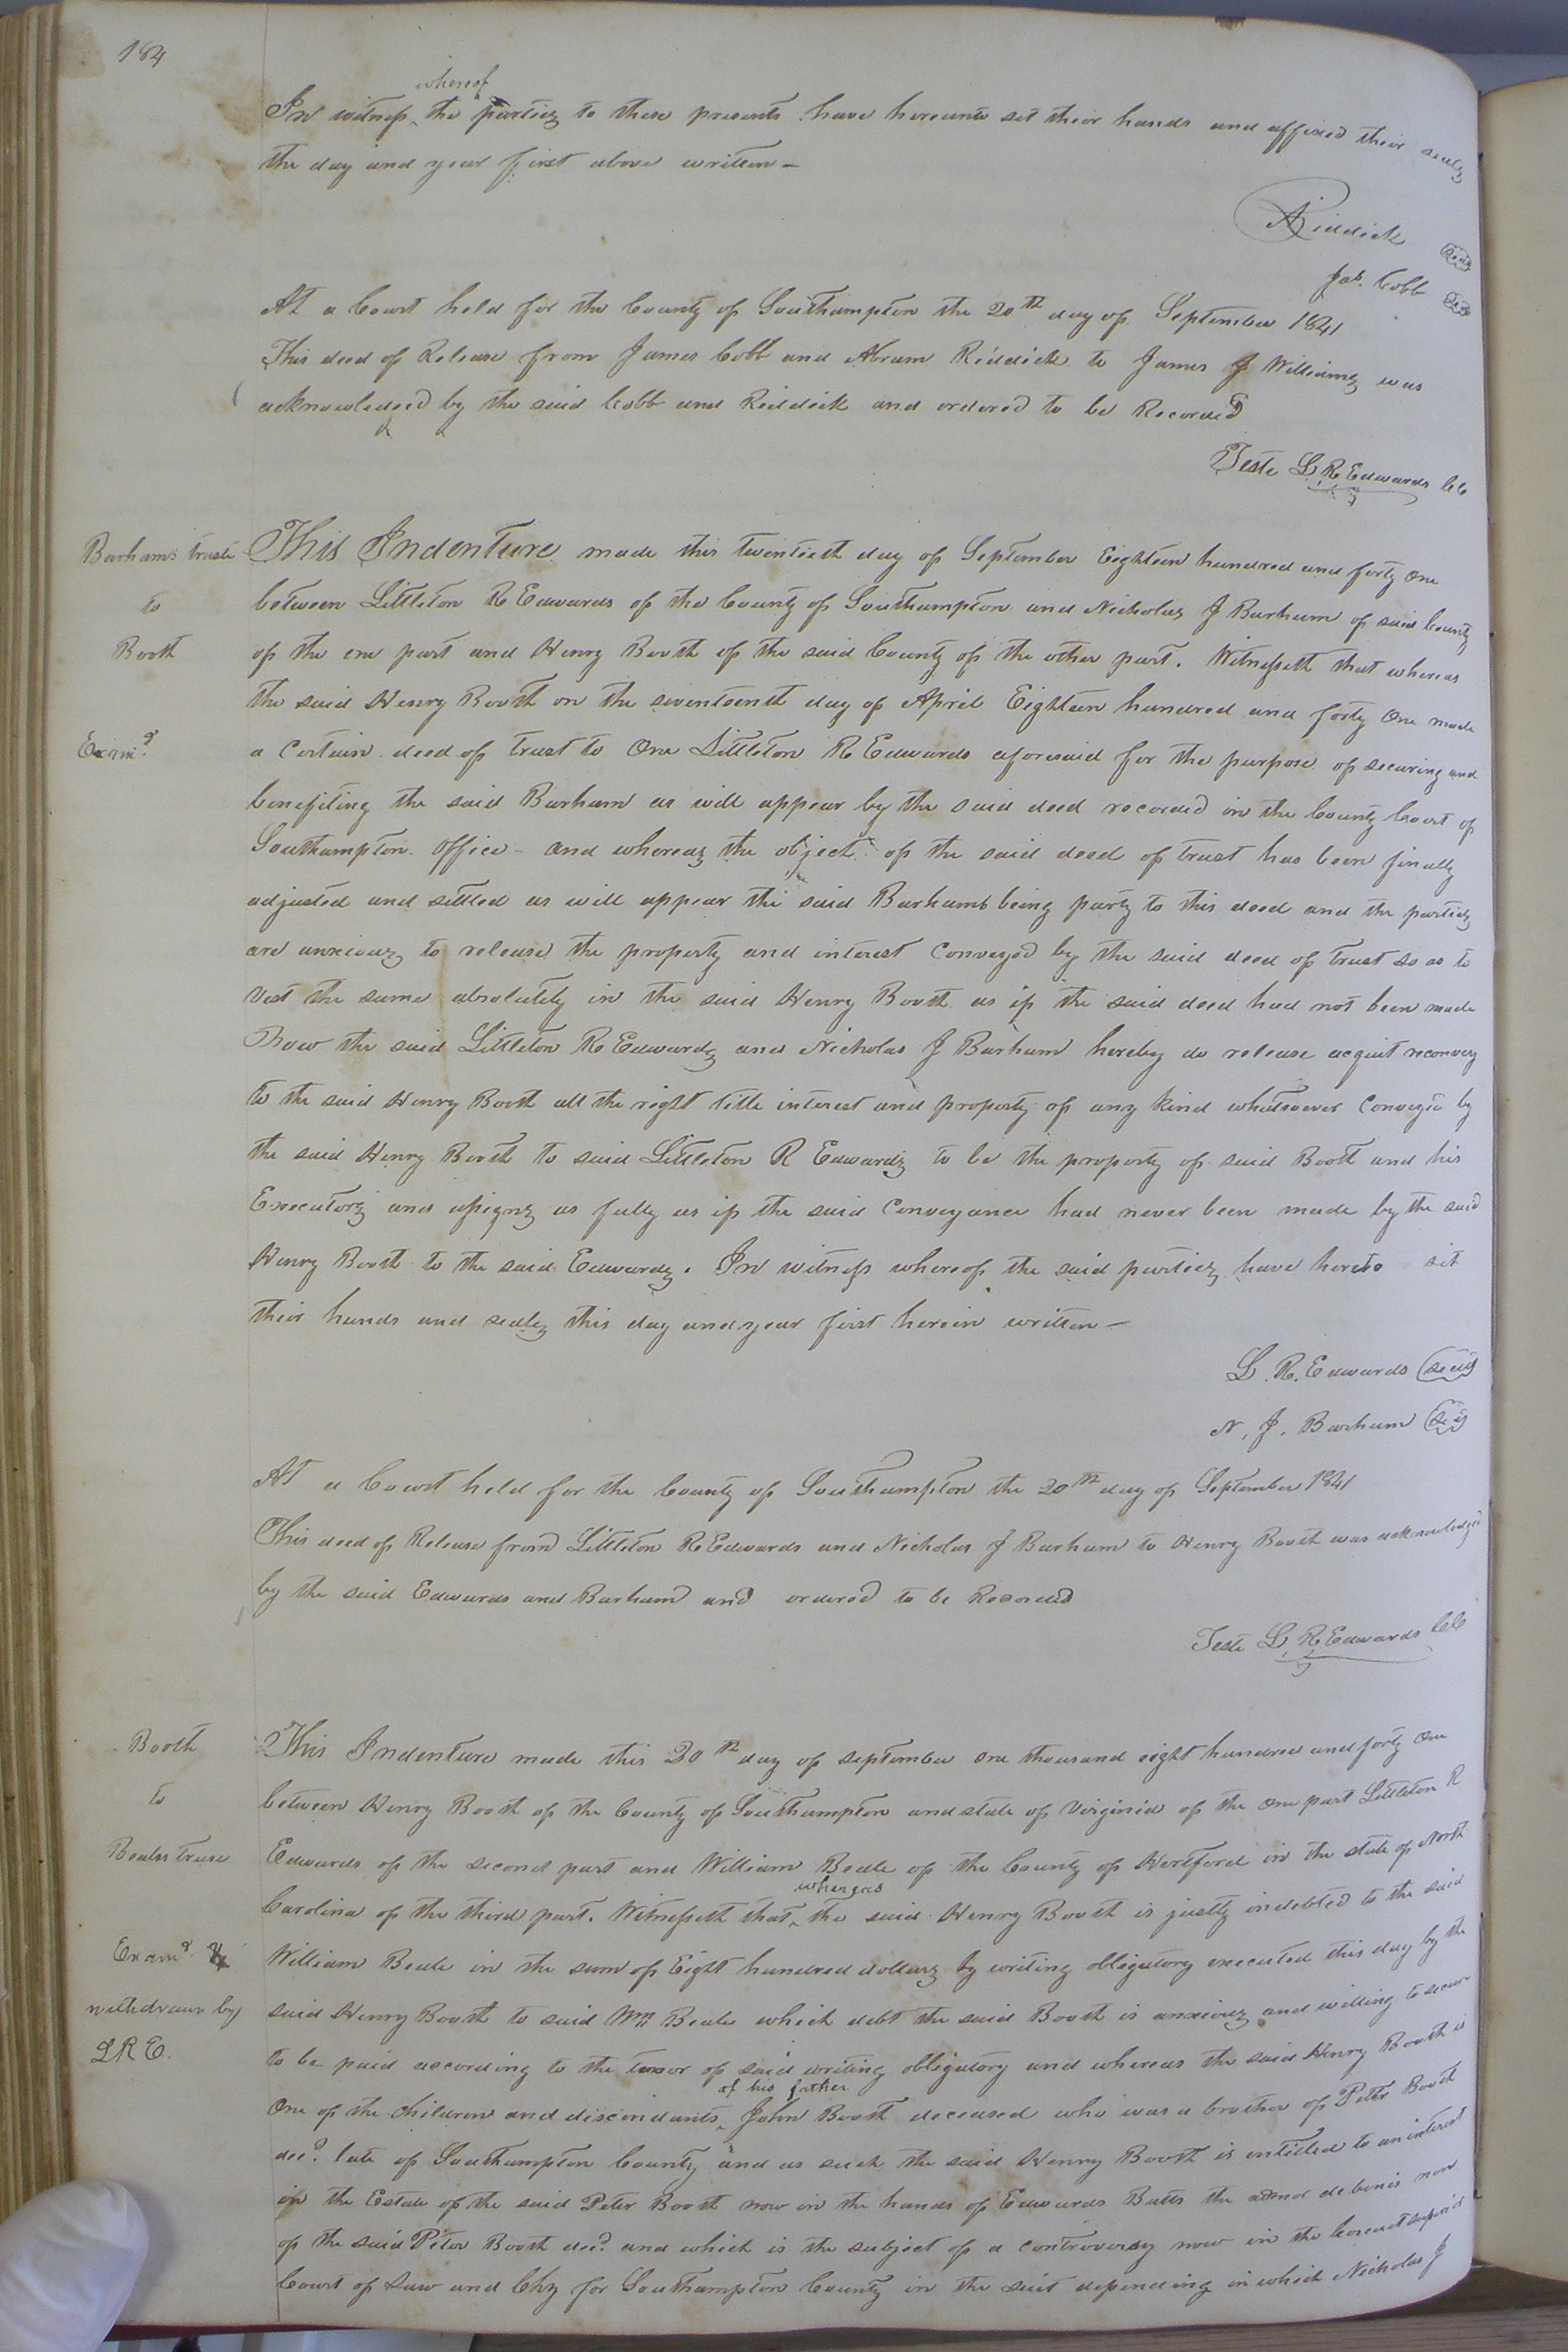 184
whereof
In witness the parties to these presents have hereunto set their hands and affixed their seals
the day and year first above written —
A Riddick Seal
Jas. Cobb Seal
At a Court held for the County of Southampton the 20th day of September 1841
This deed of Release from James Cobb and Abram Riddick to James J Williams was
acknowledged by the said Cobb and Riddick and ordered to be Recorded
Teste L R Edwards CC
Barhams truste
to
Booth
Exam.d
This Indenture made this twentieth day of September Eighteen hundred and forty One
between Littleton R Edwards of the County of Southampton and Nicholas J Barham of said County
of the one part and Henry Booth of the said County of the other part. Witnesseth that whereas
the said Henry Booth on the seventeenth day of April Eighteen hundred and forty One made
a Certain deed of trust to One Littleton R Edwards aforesaid for the purpose of securing and
benefiting the said Barham as will appear by the said deed recorded in the County Court of
Southampton Office – and whereas the object of the said deed of trust has been finally
adjusted and settled as will appear the said Barhams being party to this deed and the parties
are anxious to release the property and interest Conveyed by the said deed of trust so as to
Vest the same absolutely in the said Henry Booth as if the said deed had not been made
Now the said Littleton R Edwards and Nicholas J Barham hereby do release acquit reconvey
to the said Henry Booth all the right title interest and property of any kind whatsoever Conveyed by
the said Henry Booth to said Littleton R Edwards to be the property of said Booth and his
Executors and assigns as fully as if the said Conveyance had never been made by the said
Henry Booth to the said Edwards. In witness whereof the said parties have hereto set
their hands and seals this day and year first herein written —
L. R. Edwards Seal
N. J. Barham Seal
At a Court held for the County of Southampton the 20th day of September 1841
This deed of Release from Littleton R Edwards and Nicholas J Barham to Henry Booth was acknowledged
by the said Edwards and Barham and ordered to be Recorded
Teste L R Edwards CC
Booth
to
Beales truse
Exam.d
withdrawn by
L R E.
This Indenture made this 20th day of September one thousand eight hundred and forty One
between Henry Booth of the County of Southampton and state of Virginia of the One part Littleton R
Edwards of the second part and William Beale of the County of Hertford in the state of North
whereas
Carolina of the third part. Witnesseth that the said Henry Booth is justly indebted to the said
William Beale in the sum of Eight hundred dollars by writing obligatory executed this day by the
said Henry Booth to said Wm Beale which debt the said Booth is anxious and willing to secure
to be paid according to the tenor of said writing obligatory and whereas the said Henry Booth is
of his father
One of the children and discendants John Booth deceased who was a brother of Peter Booth
decd. late of Southampton County and as such the said Henry Booth is entitled to an interest
in the Estate of the said Peter Booth now in the hands of Edwards Butts the admr de bonis non
of the said Peter Booth decd. and which is the subject of a controversy now in the Circuit superior
Court of Law and Chy for Southampton County in the suit depending in which Nicholas J